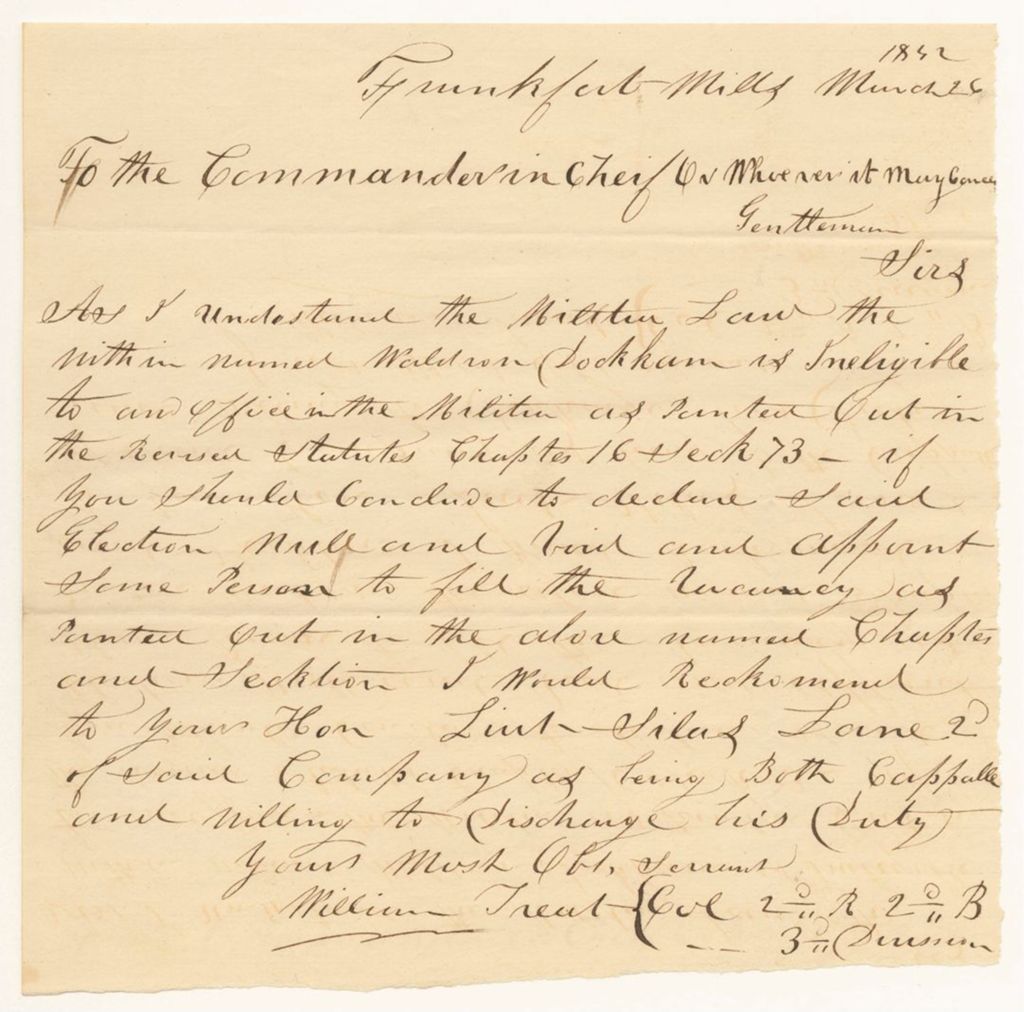 1842
Frankfort Mills March 26
To the Commander in Cheif Or Whoever it May Concer
Gentleman
Sirs
As I understand the Militia Law the
within named Waldron Dockham is Ineligible
to and office in the Militia as Pointed Out in
the Revised Statutes Chapter 16 Seck 73 — if
You Should Conclude to declare Said
Election Null and Void and Appoint
Some Person to fill the Vacancy as
Pointed Out in the above named Chapter
and Secktion I Would Reckomend
to Your Hon Liut Silas Lane 2d
of Said Company as being Both Cappable
and Willing to Discharge his Duty
Yours Most Obt, Servant
William Treat Col 2d R 2d B
3d Division